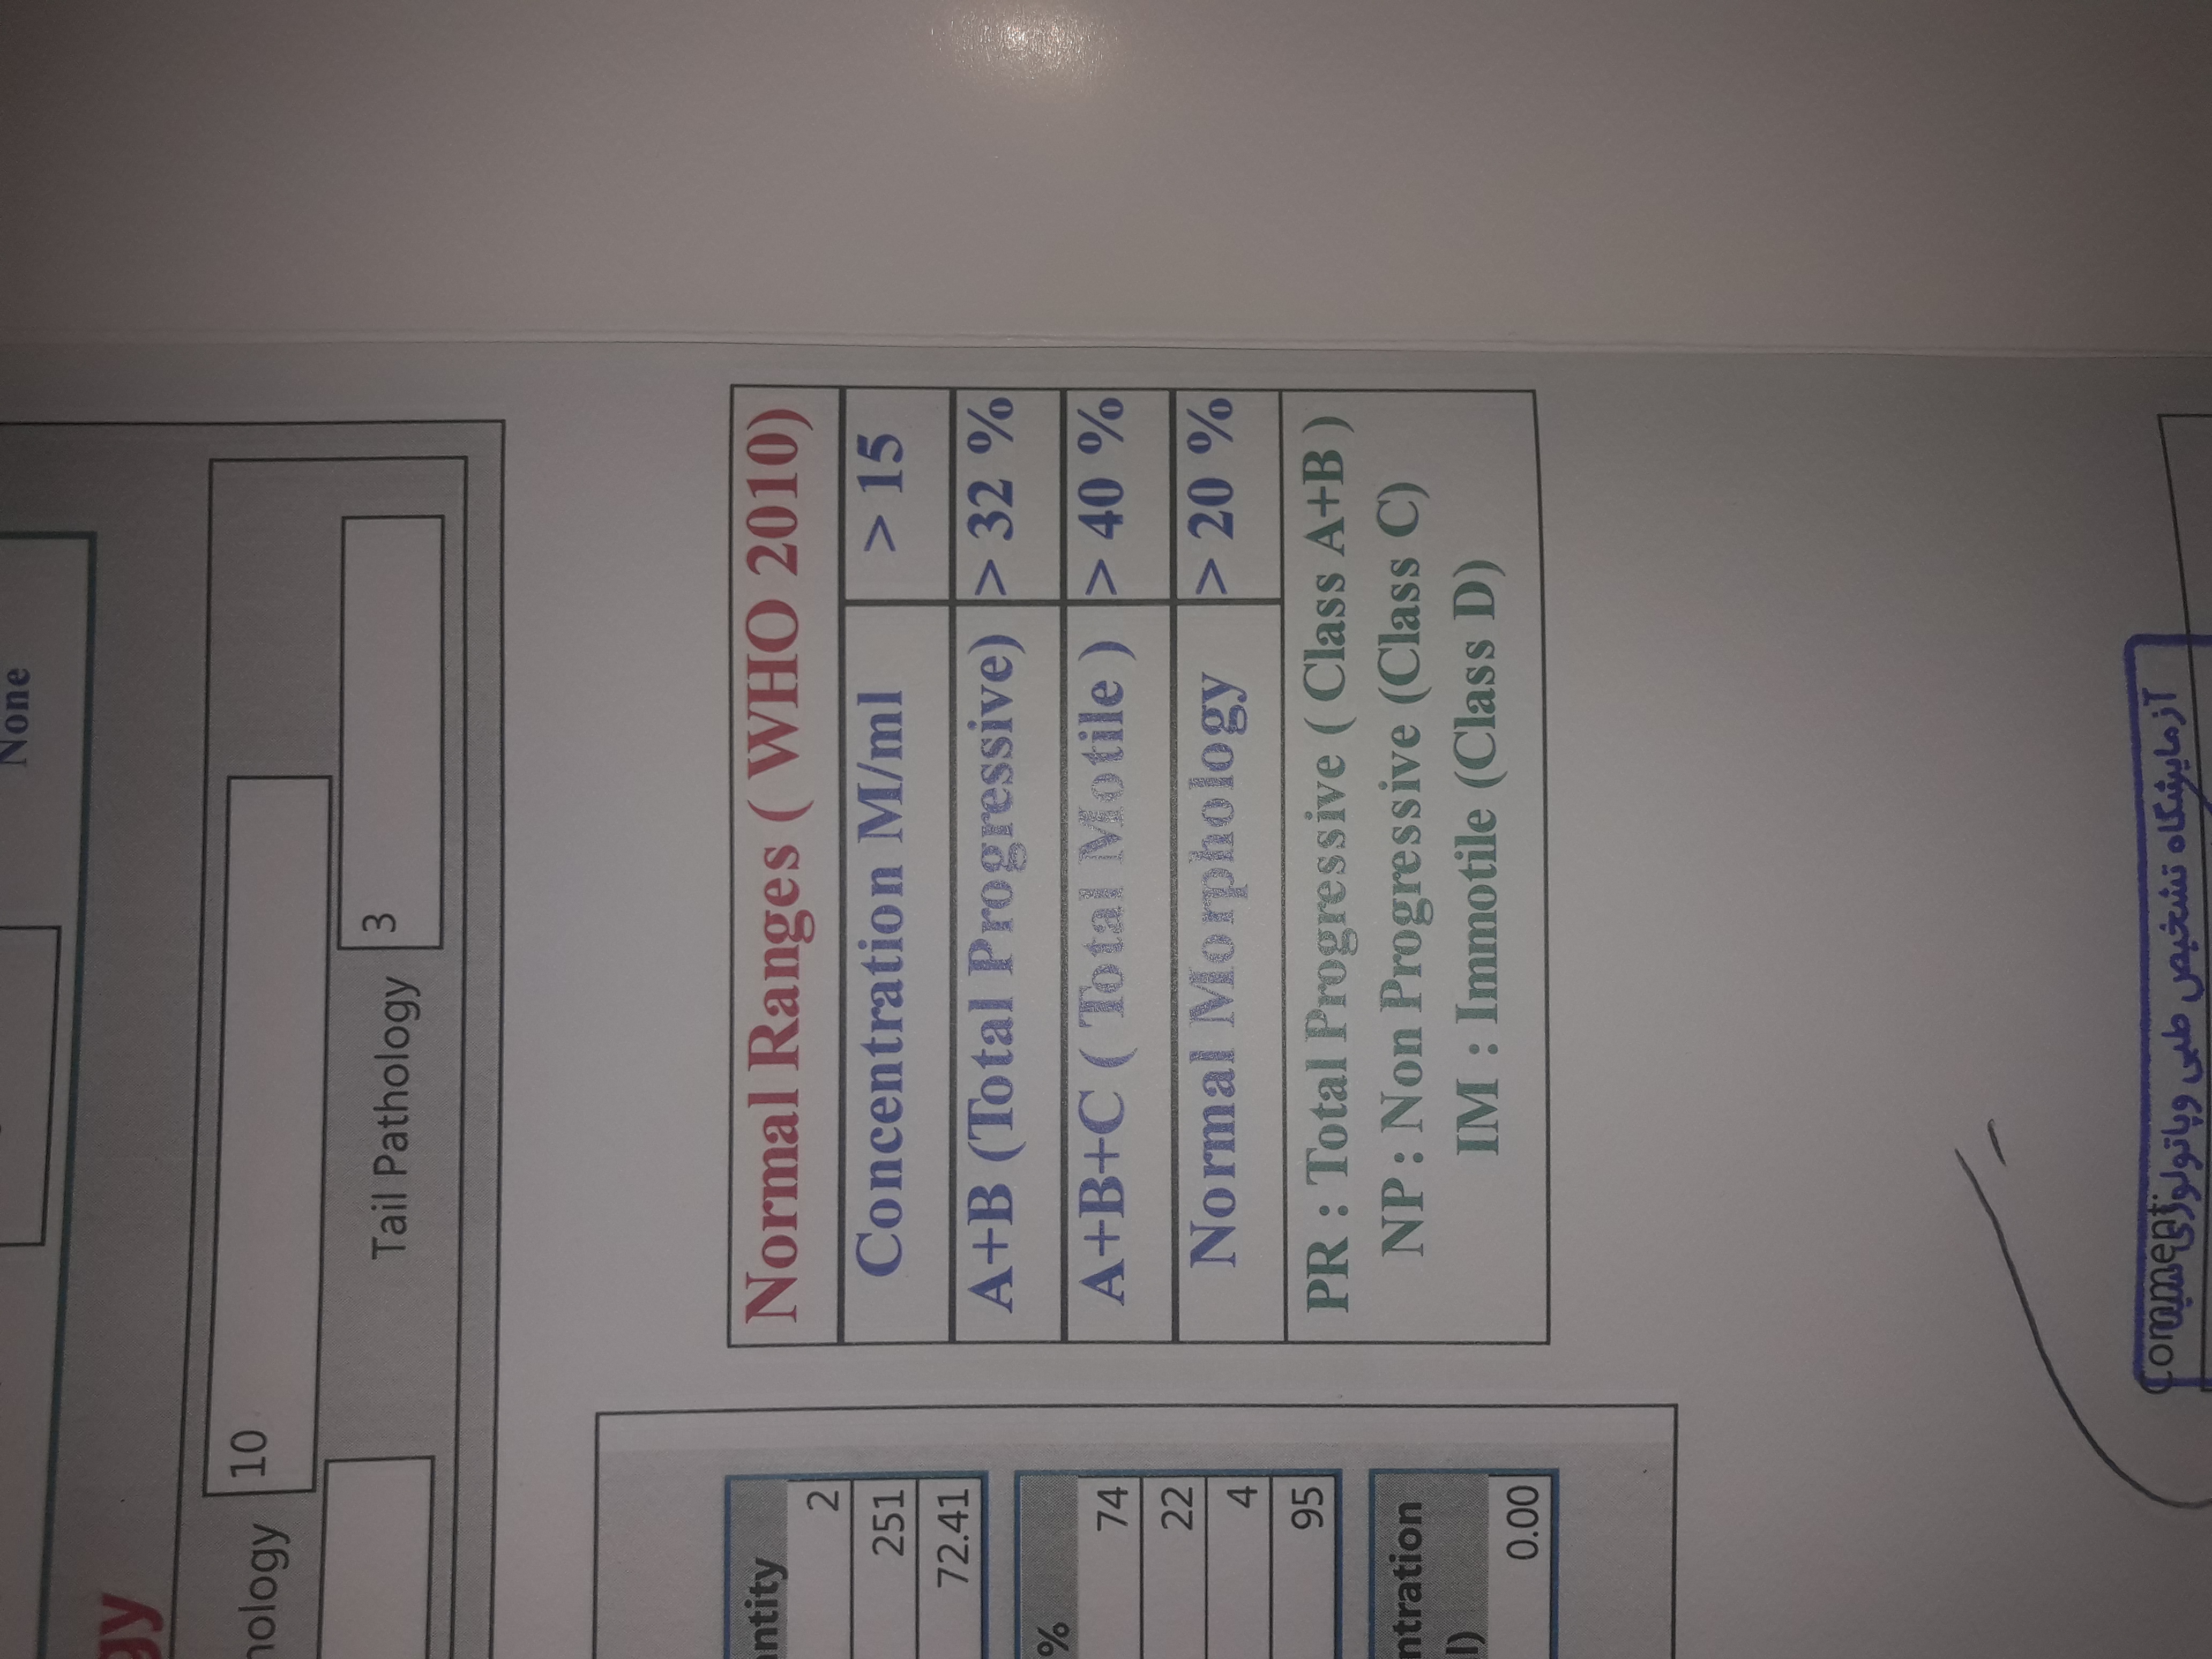 None
10
Tail Pathology
3
Normal Ranges ( WHO 2010)
Concentration M/ml > 15
A+B (Total Progressive) > 32 %
A+B+C ( Total Motile ) > 40 %
Normal Morphology > 20 %
PR : Total Progressive ( Class A+B )
NP : Non Progressive (Class C)
IM : Immotile (Class D)
2
251
72.41
%
74
22
4
95
0.00
Comment:
آزمایشگاه تشخیص طبی وپاتولوژی